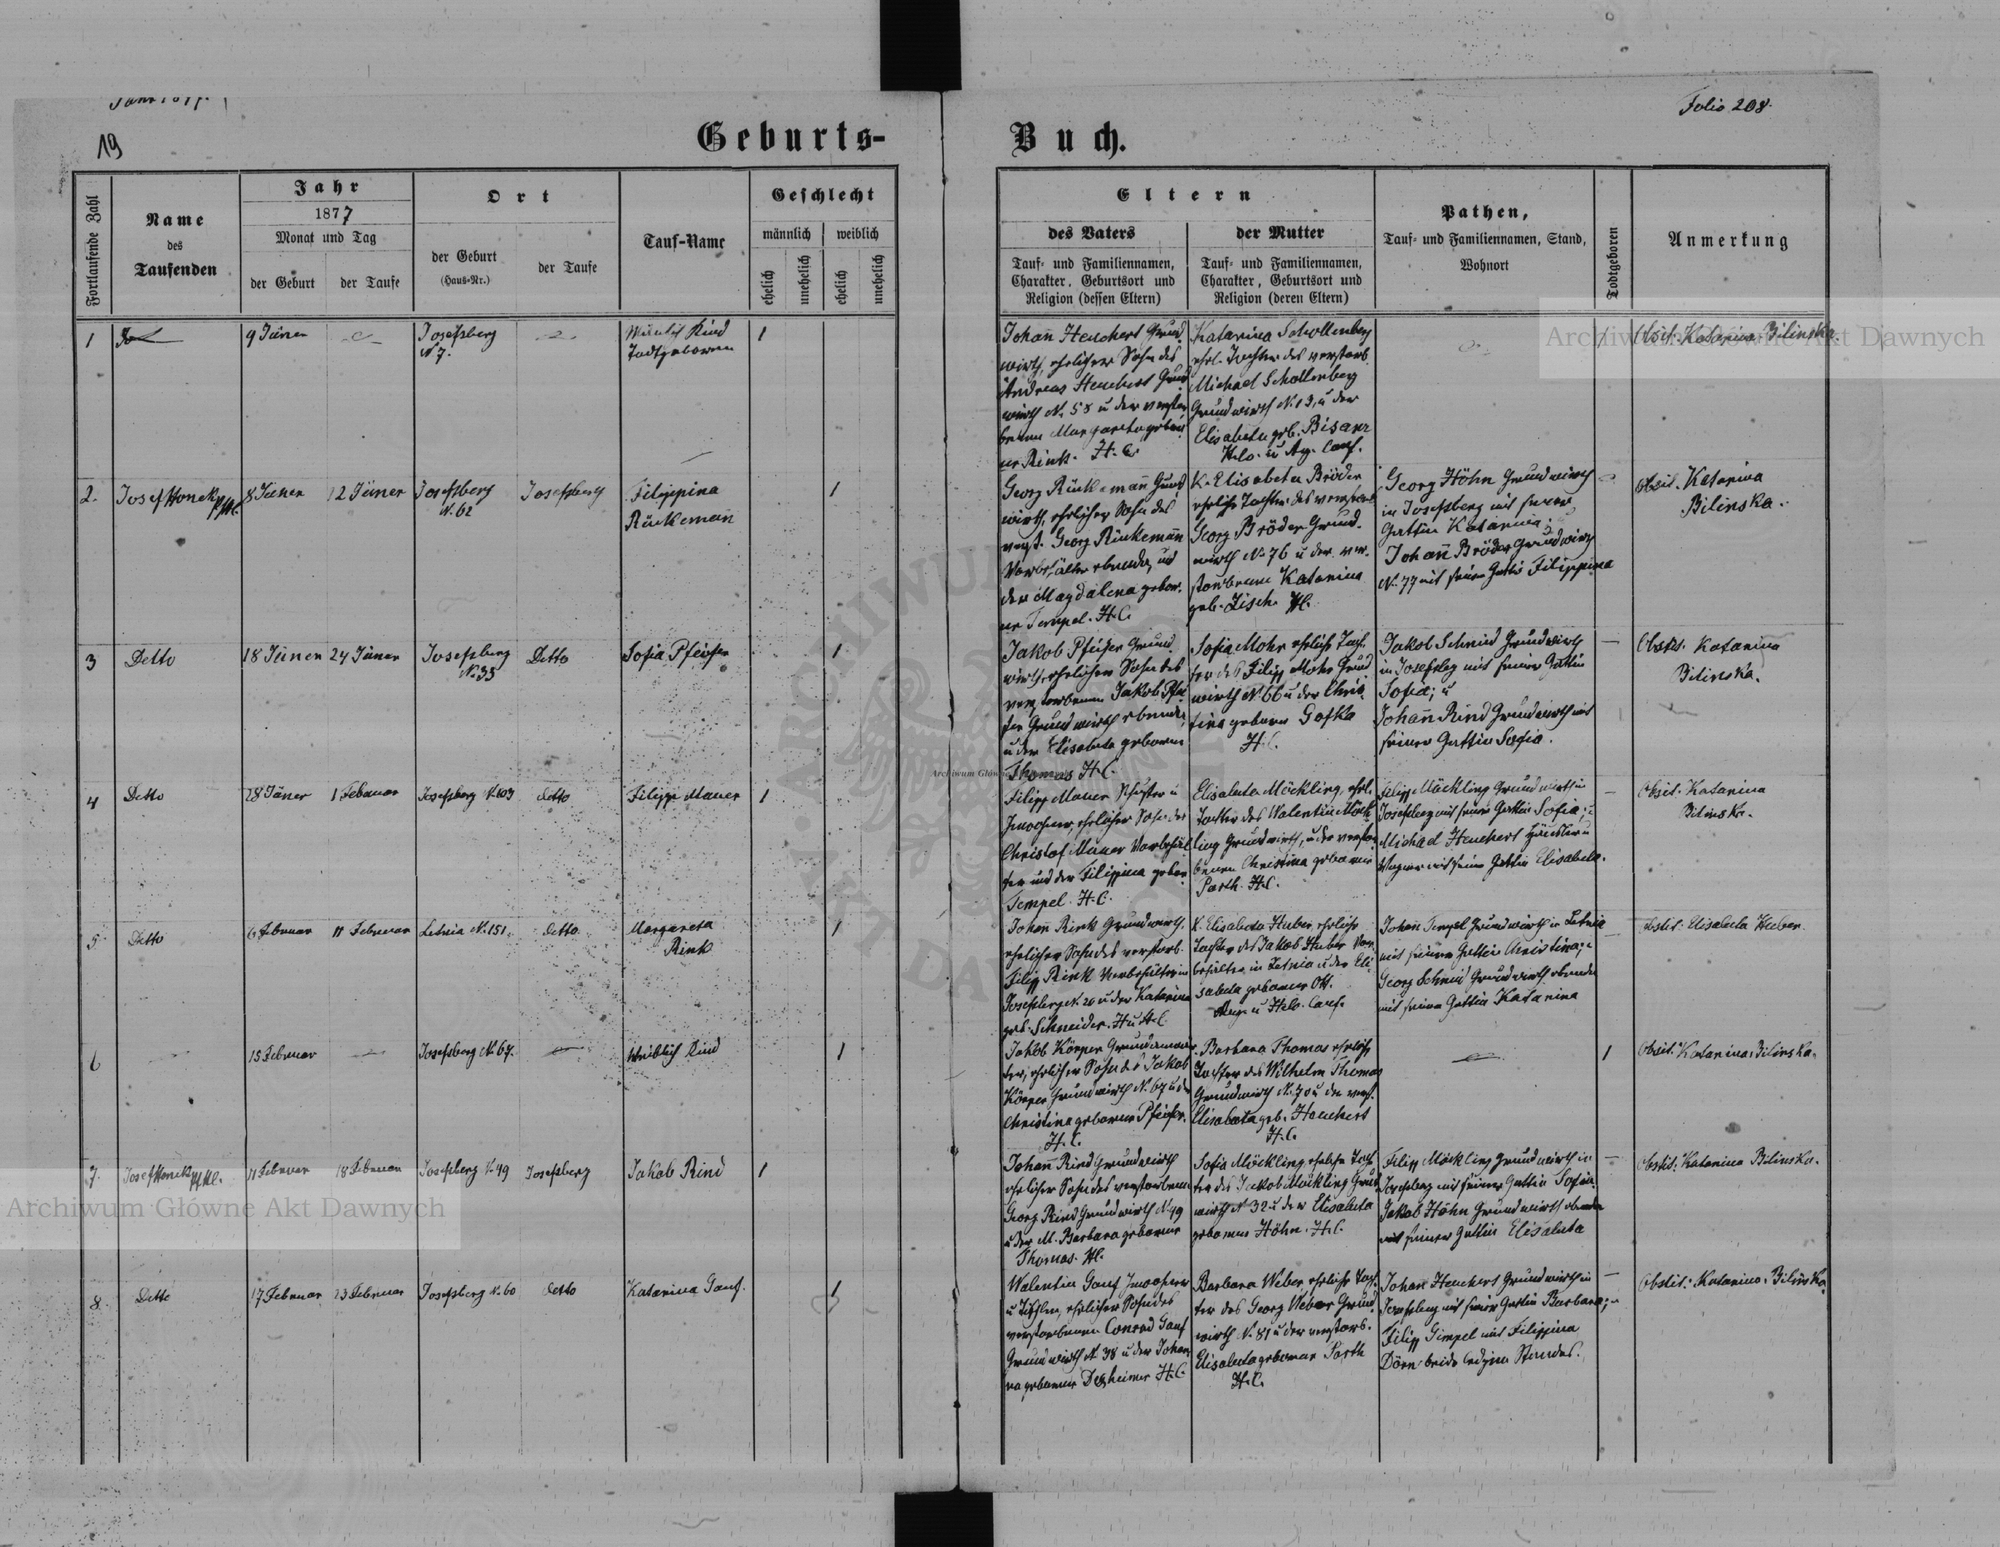 Jahr 1877.
Folio 208.
19
Geburts-Buch.
Fortlaufende Zahl
Name
des
Taufenden
Jahr
1877
Monat und Tag
der Geburt
der Taufe
Ort
der Geburt
(Haus-Nr.)
der Taufe
Tauf-Name
Geschlecht
männlich
weiblich
ehelich
unehelich
ehelich
unehelich
Eltern
des Vaters
Tauf- und Familiennamen,
Charakter, Geburtsort und
Religion (dessen Eltern)
der Mutter
Tauf- und Familiennamen,
Charakter, Geburtsort und
Religion (deren Eltern)
Pathen,
Tauf- und Familiennamen, Stand,
Wohnort
Todtgeboren
Anmerkung
1
9 Jäner
Josefsberg
N. 7.
Männlich Kind
Todtgeboren
1
Johann Heuchert Grund
wirth, ehelicher Sohn des
Andreas Heuchert Grund
wirth N. 58 u der verstor
benen Margareta gebor
ne Rink. H. C.
Katarina Schollenberg
ehel. Tochter des verstorb.
Michael Schollenberg
Grundwirth N. 13, u der
Elisabeta geb. Bisanz
Helv. u Aug. Conf.
1
Obsit. Katarina Bilinska.
2.
Josef Honek
8 Jäner
12 Jäner
Josefsberg
N. 62
Josefsberg
Filippina
Rinkemann
1
Georg Rinkemann Grund
wirth, ehelicher Sohn des
verst. Georg Rinkemann
Vorbehälter ebenda, und
der Magdalena gebor.
ne Tempel. H. C.
K. Elisabeta Bröder
eheliche Tochter des verstorb
Georg Bröder Grund.
wirth N. 76 u der ver-
storbenen Katarina
geb. Zisch.
Georg Höhn Grundwirth
in Josefsberg mit seiner
Gattin Katarina;
Johann Bröder Grundwirth
N. 77 mit seiner Gattin Filippina
Obsit. Katarina
Bilinska.
3
Detto
18 Jäner
24 Jäner
Josefsberg
N. 35
Detto
Sofia Pfeifer
1
Jakob Pfeifer Grund
wirth, ehelicher Sohn des
verstorbenen Jakob Pfei
fer Grundwirth ebenda,
u der Elisabeta geborene
Thomas H. C.
Sofia Mohr eheliche Toch.
ter des Filipp Mohr Grund
wirth N. 66 u der Chris
tina geborne Gofka
H. C.
Jakob Schmid Grundwirth
in Josefsbg mit seiner Gattin
Sofia; u
Johann Rind Grundwirth mit
seiner Gattin Sofia.
Obstit. Katarina
Bilinska.
4
Detto
28 Jäner
1 Februar
Josefsberg N. 103
detto
Filipp Mauer
1
Filipp Mauer Schuster u
Inwohner, ehelicher Sohn des
Christof Mauer Vorbehäl
ter und der Filippina gebor
Tempel. H. C.
Elisabeta Möckling, ehel.
Tochter des Walentin Möck
ling Grundwirth, u der verstor
benen Christina geborne
Parth. H. C.
Filipp Möckling Grundwirth in
Josefsberg mit seiner Gattin Sofia; u
Michael Heuchert Häusler u
Wagner mit seiner Gattin Elisabeta.
Obsit. Katarina
Bilinska.
5
Detto
6 Februar
11 Februar
Letnia N. 151.
detto
Margareta
Rink
1
Johann Rink Grundwirth.
ehelicher Sohn des verstorb.
Filipp Rink Vorbehälter in
Josefsberg N. 20 u der Katarina
geb. Schneider. H u H. C.
K. Elisabeta Huber, eheliche
Tochter des Jakob Huber Vor
behälter in Letnia u der Eli
sabeta geborne Ott.
Aug. u Helv. Conf.
Johann Tempel Grundwirth in Letnia
mit seiner Gattin Christina; u
Georg Schmid Grundwirth ebenda
mit seiner Gattin Katarina
Obstit. Elisabeta Huber.
6
15 Februar
Josefsberg N. 67.
Weiblich Kind
1
Jakob Körper Grundwirth
ehelicher Sohn des Jakob
Körper Grundwirth N. 67 u der
Christina geborene Pfeifer.
H. C.
Barbara Thomas eheliche
Tochter des Wilhelm Thomas
Grundwirth N. 70 u der verst.
Elisabeta geb. Heuchert
H. C.
1
Obsit. Katarina Bilinska.
7.
Josef Honek
11 Februar
18 Februar
Josefsberg N. 49
Josefsberg
Jakob Rind
1
Johann Rind Grundwirth
ehelicher Sohn des verstorbenen
Georg Rind Grundwirth N. 49
u der M. Barbara geborene
Thomas.
Sofia Möckling eheliche Toch
ter des Jakob Möckling Grund
wirth N. 32 u der Elisabeta
geborene Höhn. H. C.
Filipp Möckling Grundwirth in
Josefsberg mit seiner Gattin Sofia.
Jakob Höhn Grundwirth ebenda
mit seiner Gattin Elisabeta
Obstit. Katarina Bilinska.
8.
Detto
17 Februar
23 Februar
Josefsberg N. 60
detto
Katarina Gauf.
1
Walentin Gauf Inwohner
u Tischler, ehelicher Sohn des
verstorbenen Conrad Gauf
Grundwirth N. 38 u der Johan
na geborene Dexheimer H. C.
Barbara Weber eheliche Toch
ter des Georg Weber Grund
wirth N. 81 u der verstorb.
Elisabeta geborene Parth
H. C.
Johann Heuchert Grundwirth in
Josefsberg mit seiner Gattin Barbara; u
Filipp Gimpel mit Filippina
Dörn beide ledigen Standes.
Obstit. Katarina Bilinska
Archiwum Główne Akt Dawnych
Archiwum Główne Akt Dawnych